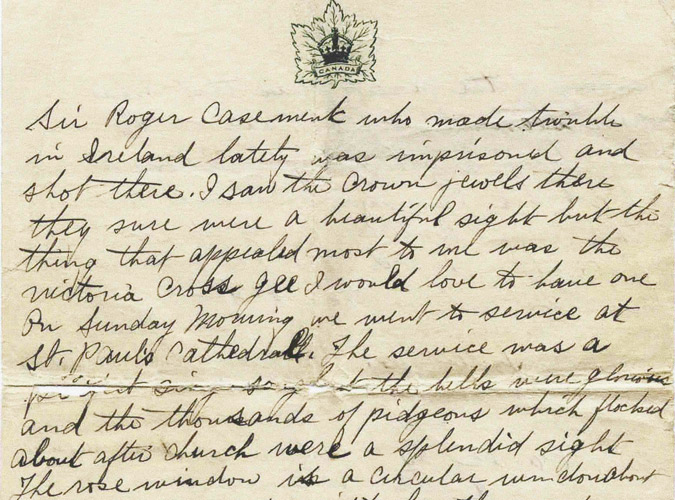 CANADA
Sir Roger Casement who made trouble
in Ireland lately was imprisoned and
shot there. I saw the Crown jewels there
they sure were a beautiful sight but the
thing that appealed most to me was the
Victoria Cross gee I would love to have one
On Sunday Morning we went to service at
St. Paul's Cathedrall. The service was a
the bells were glorious
and the thousands of pidgeons which flocked
about after church were a splendid sight
The rose window is a circular window about